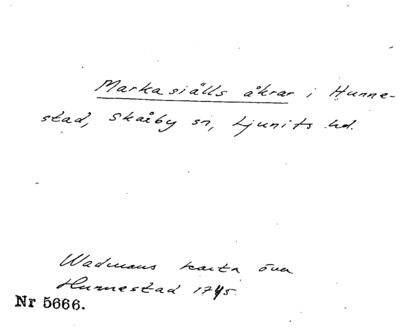 Markasiälls åkrar i Hunne-
stad, Skårby sn, Ljunits hd.
Wadmans karta över
Hunnestad 1745.
Nr 5666.